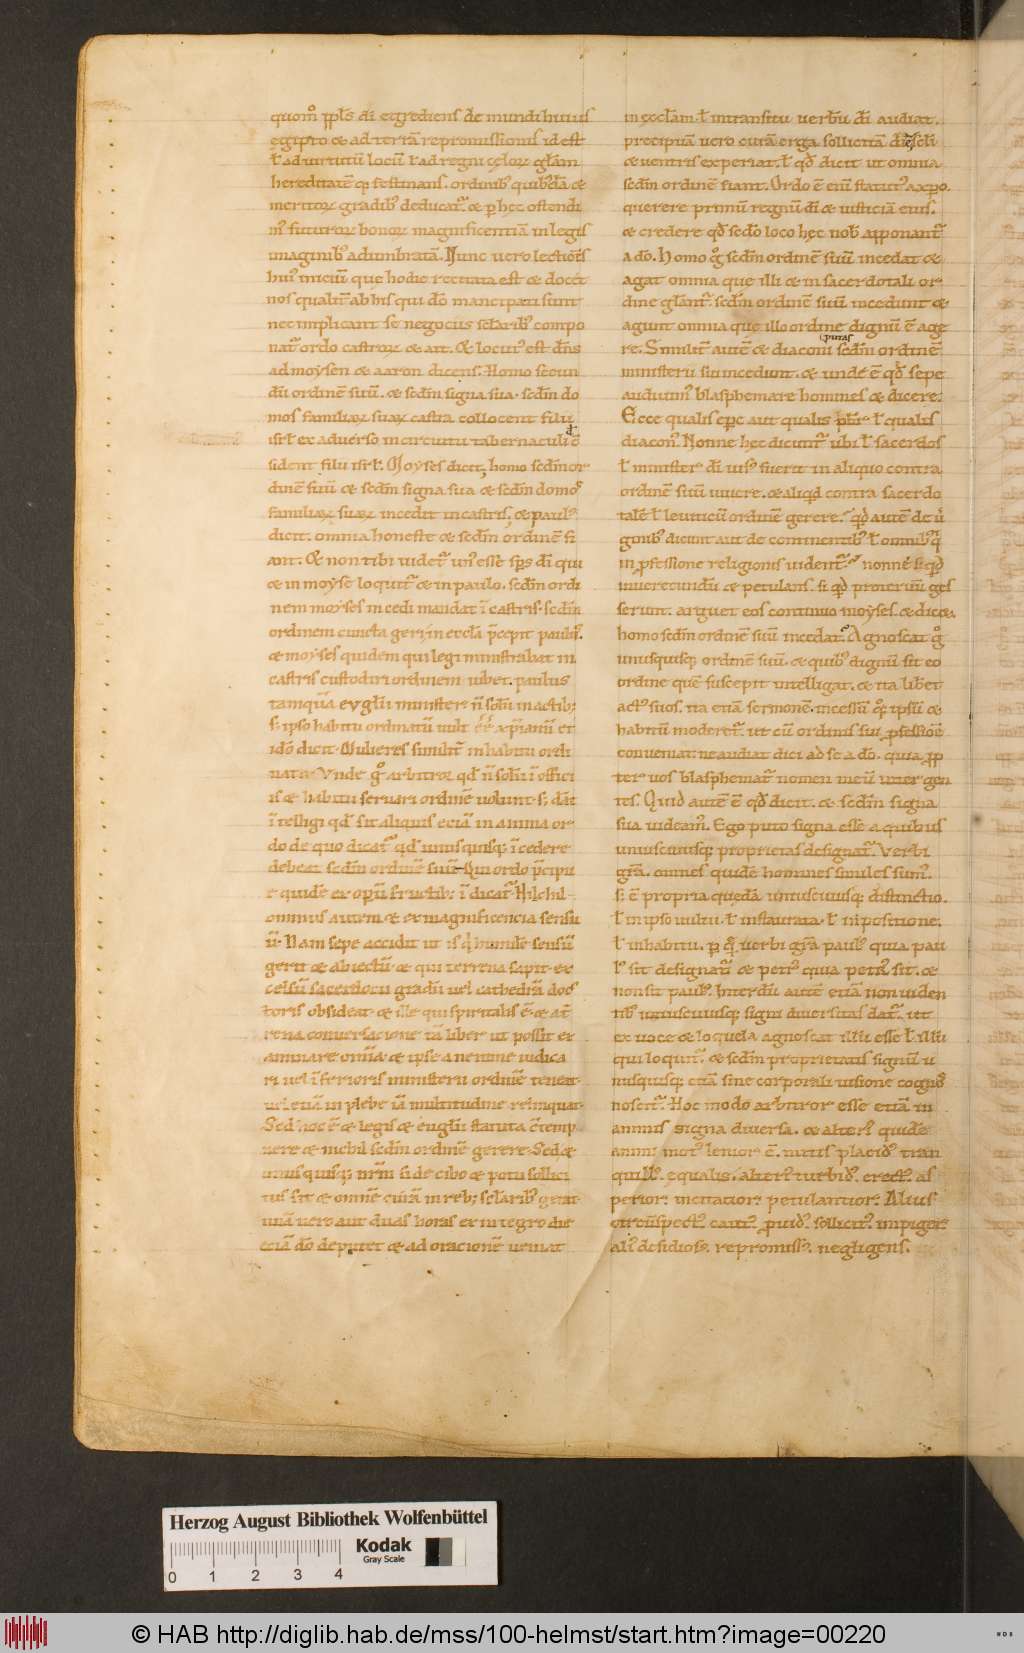 quomo ppls dī egrediens de mundi huius
egipto & ad terrā repromissionis id est
ł ad uirtutū locū ł ad regni cęlorꝝ glām
hereditatē q; festinans. ordinib; quibdā &
meritorꝝ gradib; deducat᷑. & p hec ostendi
in futurorꝝ bonorꝝ magnificentiā in legis
imaginib; adumbratā. Nunc uero lectiōis
hui᷒ iniciū que hodie recitata est & docēt
nos qualit̄ ab his qui dō mancipati sunt
nec implicant se negociis sclarib; compo
nat᷑ ordo castrorꝝ & ait. Et locut᷒ est dn̄s
ad moysen & aaron dicens. Homo secun
dū ordinē suū. & scdm signa sua. scdm do
mos familiarꝝ suarꝝ castra collocent filii
isrł ex aduerso in circuitu tabernaculi c̄
sident filii isrł. Moyses dicit, homo scdm or
dinē suū & scdm signa sua & scdm domos
familiarꝝ suarꝝ incedit in castris. & paul᷒
dicit. omnia honeste & scdm ordinē fi
ant. Et non tibi uidet᷑ un᷒ esse sps dī qui
& in moyse loquit᷑ & in paulo. scdm ordi
nem moyses incedi mandat ī castris. scdm
ordinem cuncta geri in eccla p̄cepit paul᷒.
& moyses quidem qui legi ministrabat in
castris custodiri ordinem iubet. paulus
tamquā euglii minister n̄ solū in actib;
s; ipso habitu ordinatū uult ēē xpianū et
idō dicit. Mulieres similit̄ in habitu ordi
nato. Vnde g° arbitror qd n̄ solū ī offici
is & habitu seruari ordinē uolunt s; dāt
ītelligi qd sit aliquis eciā in anima or
do de quo dicat᷑ qd unusquisq; īcedere
debeat scdm ordinē suū. Qui ordo p̄cipu
e quidē ex operū fructib; īdicat᷑. Nichil
ominus autem & ex magnificencia sensu
ū. Nam sepe accidit ut is q̇ humilē sensū
gerit & abiectū. & qui terrena sapit. ex
celsū sacerdocii gradū uel cathedrā doc
toris obsideat. & ille qui spiritalis ē. & a t̄
rena conuersacione tā liber ut possit ex
aminare omīa. & ipse a nemine iudica
ri uel īferioris ministerii ordinē teneat.
uel etiā in plebe iā multitudine relinquat᷑.
Sed hoc ē & legis & euuglii statuta c̄temp
nere & nichil scdm ordinē gerere. Sed &
unusquisq; nr̄m si de cibo & potu sollici
tus sit & omnē curā in reb; sclarib; gerat
unā uero aut duas horas ex integro die
eciā dō deputet & ad oracionē ueniat
in ęcclam. ł in transitu uerbū dī audiat.
precipuā uero curā erga sollicitā dī & scli
& uentris experiat. ł qd dicit ut omnia
scdm ordinē fiant. Ordo ē enī statut᷒ a xpo
querere primū regnū dī & iusticiā eius.
& credere qd scdo loco hęc nob apponant᷑
a dō. Homo g° scdm ordinē suū incedat &
agat omnia que illi & in sacerdotali or
dine glant᷑. scdm ordinē suū incedunt &
agunt omnia que illo ordine dignū ē age
re. Similit̄ autē & diaconi scdm ordinē
putas
ministerii sui incedunt. & unde ē qd sepe
audiuim᷒ blasphemare homines & dicere.
Ecce qualis epc aut qualis pbr. ł qualis
diacon᷒. Nonne hęc dicunt᷑ ubi ł sacerdos
ł minister dī uis᷒ fuerit in aliquo contra
ordinē suū uiuere. & aliqd contra sacerdo
talē ł leuiticū ordinē gerere. qd autē de ui
ginib; dicunt aut de continentib; ł omnib; q̇
in pfessione religionis uident᷑. nonne si qd
inuerecundū & petulans. si qd proteruū ges
serint. arguet eos continuo moyses. & dicet.
homo scdm ordinē suū incedat. Agnoscat g°
unusquisq; ordinē suū. & quib; dignū sit eo
ordine quē suscepit intelligat. & ita libret
act᷒ suos. ita etiā sermonē. incessū q°; ipsū &
habitū moderet᷑. ut cū ordinis sui pfessiōe
conueniat: ne audiat dici ad se a dō. quia pp
ter uos blasphemat᷑ nomen meū inter gen
tes. Quid autē ē qd dicit. & scdm signa
sua uideam᷒. Ego puto signa esse a quibus
uniuscuiusq; proprietas designat᷑. Verbi
grā. omnes quidē homines similes sum᷒.
s; ē propria quędā uniuscuiusq; distinctio.
ł in ipso uultu. ł in statura. ł in positione.
ł in habitu. p q̇ uerbi grā paul᷒ quia pau
l᷒ sit designat᷑ & petr᷒ quia petr᷒ sit. &
non sit paul᷒. Interdū autē etiā non uiden
tib; uniuscuiusq; signi diuersitas dat᷑. ut
ex uoce & loquela agnoscat illū esse ł illū
qui loquit᷑. & scdm proprietatis signū u
nusquisq; etiā sine corporali uisione cogno
noscit᷑. Hoc modo arbitror esse etiā in
animis signa diuersa. & alter᷒ quidē
animi mot᷒ lenior ē. mitis placid᷒ tran
quill᷒. equalis. alter᷒ turbid᷒. erect᷒. as
perior. incitatior. petulantior. Alius
circūspect᷒. caut᷒. prouid᷒. sollicit᷒. impiger.
ali᷒ desidios᷒. repromiss᷒. negligens.
Herzog August Bibliothek Wolfenbüttel
Kodak
Gray Scale
0 1 2 3 4
© HAB http://diglib.hab.de/mss/100-helmst/start.htm?image=00220